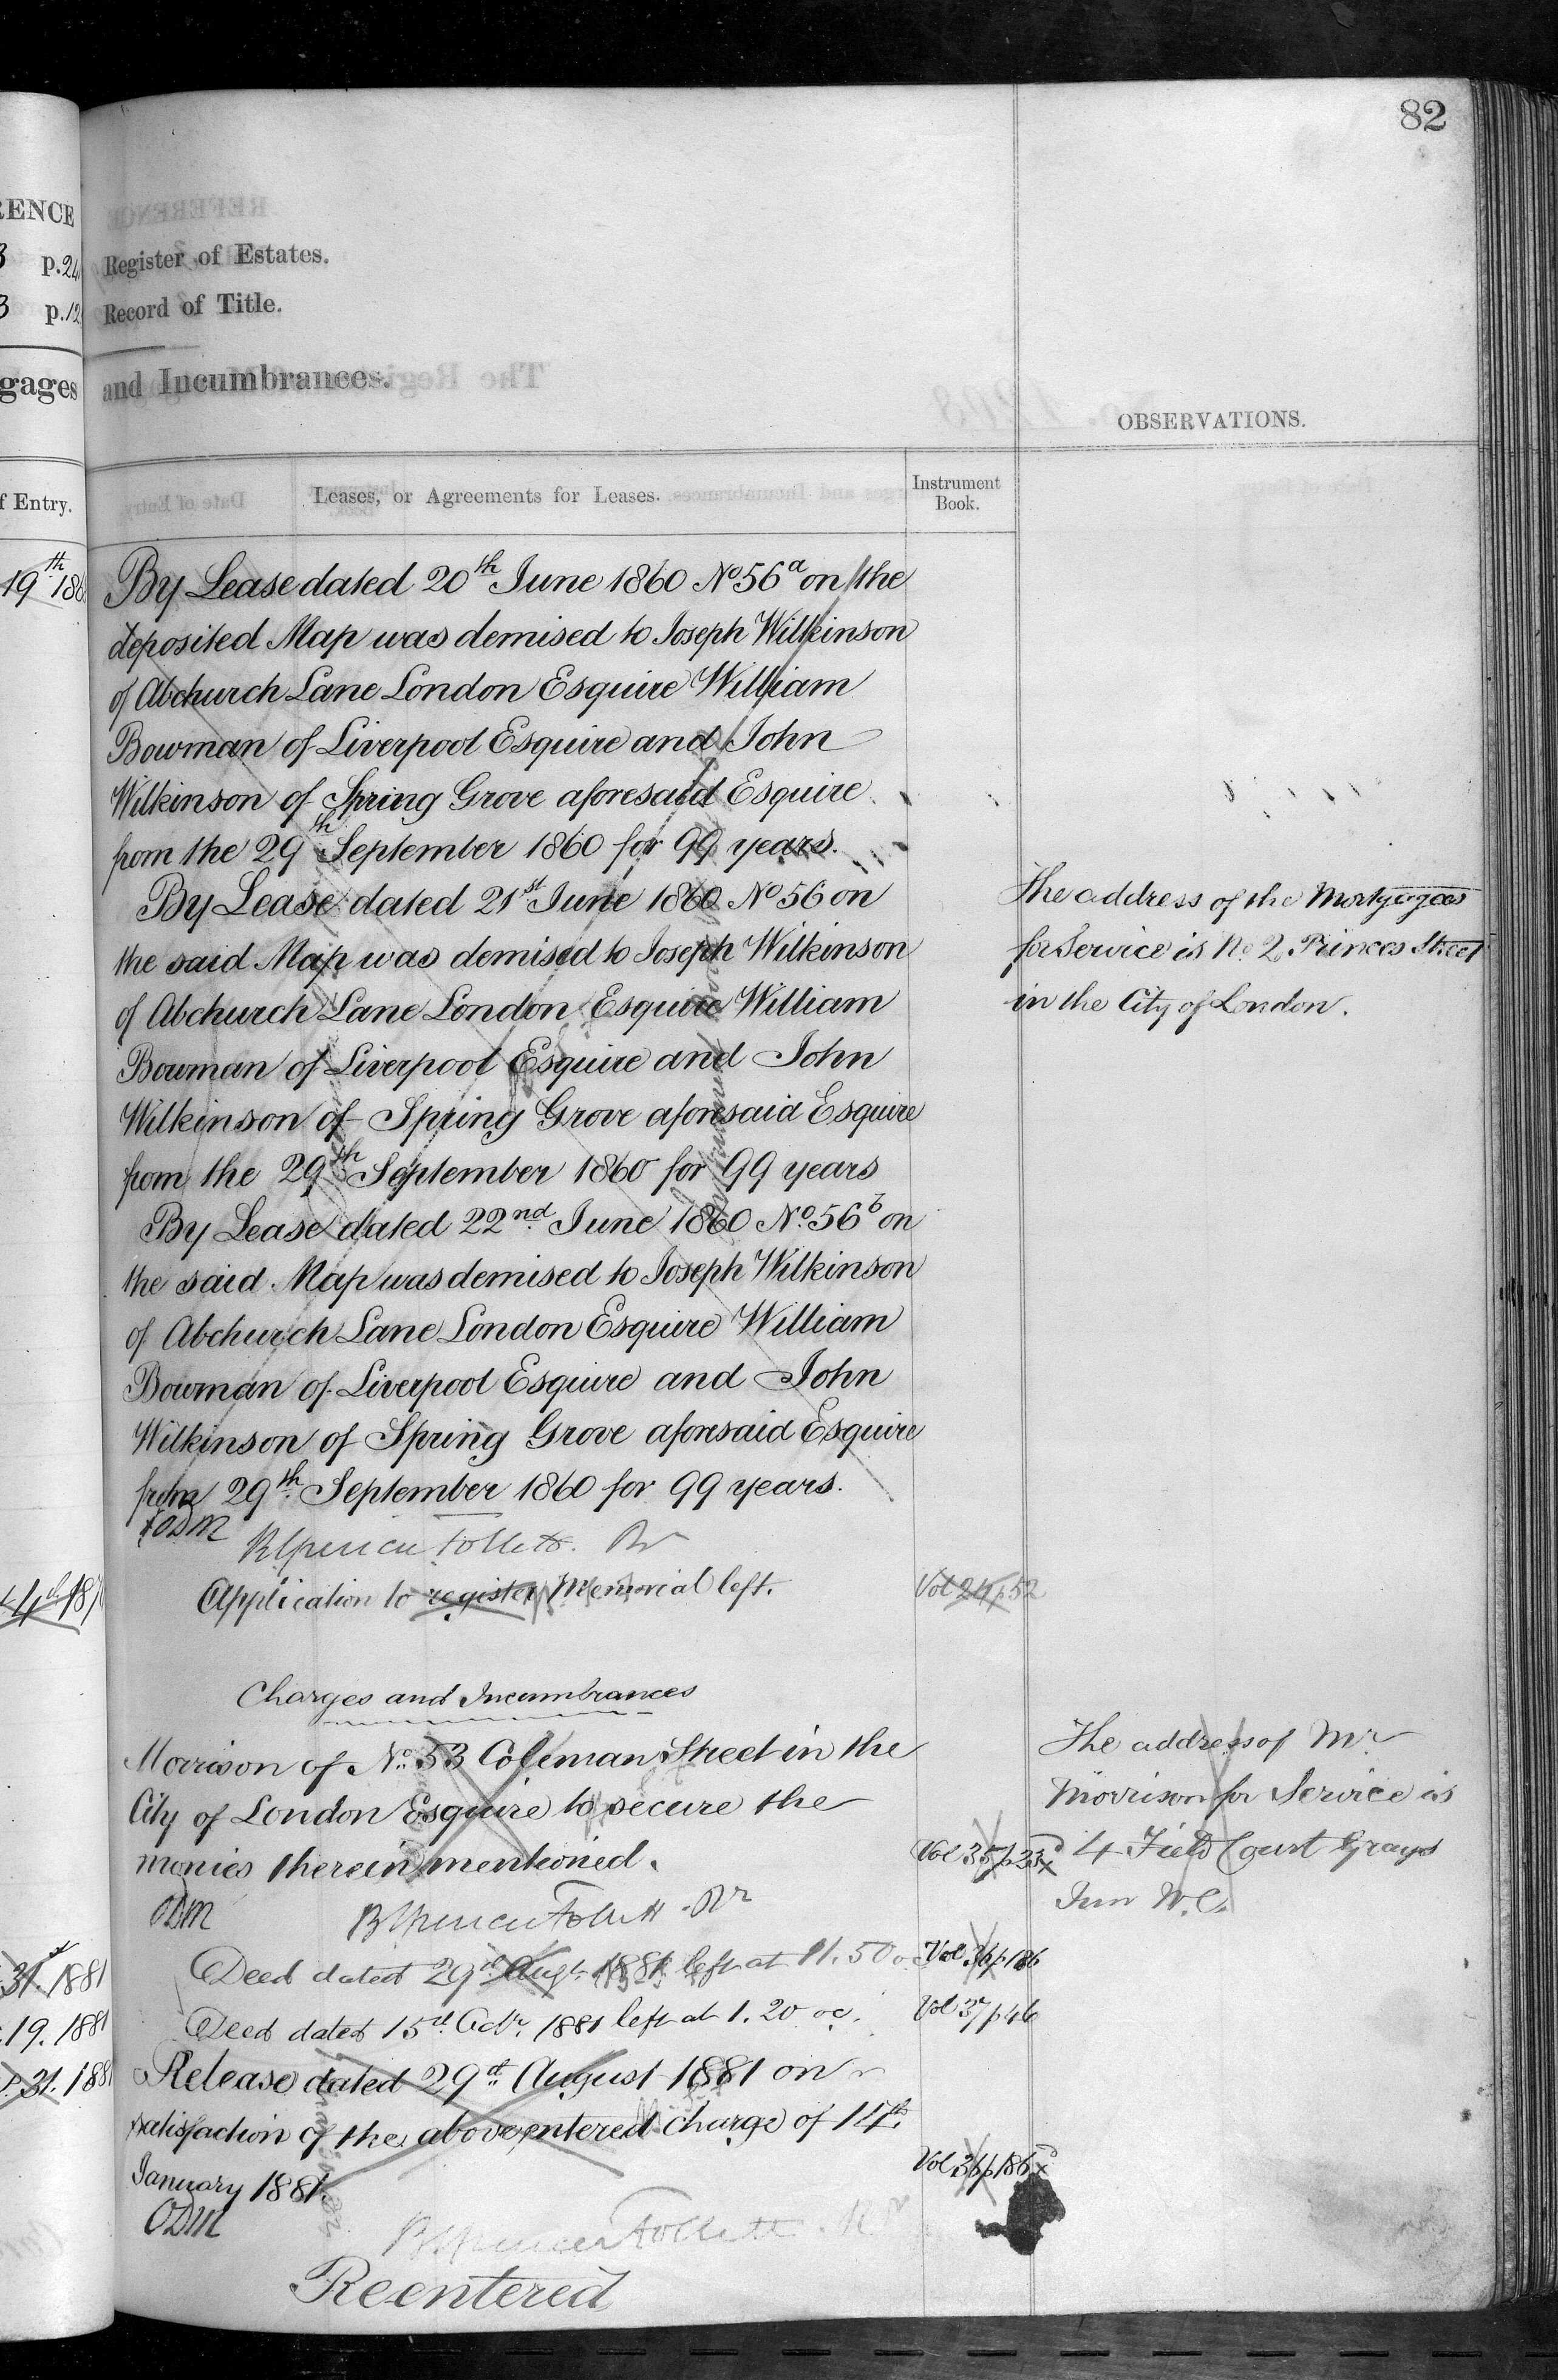 82
RENCE
p.24
p.12
gages
f Entry.
19th 186
Register of Estates.
Record of Title.
and Incumbrances.
OBSERVATIONS.
Leases, or Agreements for Leases.
Instrument
Book.
By Lease dated 20th June 1860 No 56a on the
deposited Map was demised to Joseph Wilkinson
of Abchurch Lane London Esquire William
Bowman of Liverpool Esquire and John
Wilkinson of Spring Grove aforesaid Esquire
from the 29th September 1860 for 99 years.
By Lease dated 21st June 1860 No 56 on
the said Map was demised to Joseph Wilkinson
of Abchurch Lane London Esquire William
Bowman of Liverpool Esquire and John
Wilkinson of Spring Grove aforesaid Esquire
from the 29th September 1860 for 99 years
By Lease dated 22nd June 1860 No. 56b on
the said Map was demised to Joseph Wilkinson
of Abchurch Lane London Esquire William
Bowman of Liverpool Esquire and John
Wilkinson of Spring Grove aforesaid Esquire
from 29th September 1860 for 99 years.
ODM
R Spencer Follett. Rr
Application to register Memorial left.
Vol 24 p 52
The address of the Mortgagees
for Service is No 2 Princes Street
in the City of London.
Charges and Incumbrances
Morrison of No. 53 Coleman Street in the
City of London Esquire to secure the
monies therein mentioned.
Vol 35 p 23
ODM
B Spencer Follett Rr
The address of Mr
Morrison for Service is
4 Field Court Grays
Inn W.C.
31st 1881
Deed dated 29th Augt 1881 left at 11.50
Vol 36 p 186
19. 1881
Deed dated 15th Octr. 1881 left at 1.20 oc.
Vol 37 p 46
31. 188
Release dated 29th August 1881 on
satisfaction of the above entered charge of 14th
January 1881.
Vol 36 p 186
ODM
B Spencer Follett. Rr
Reentered